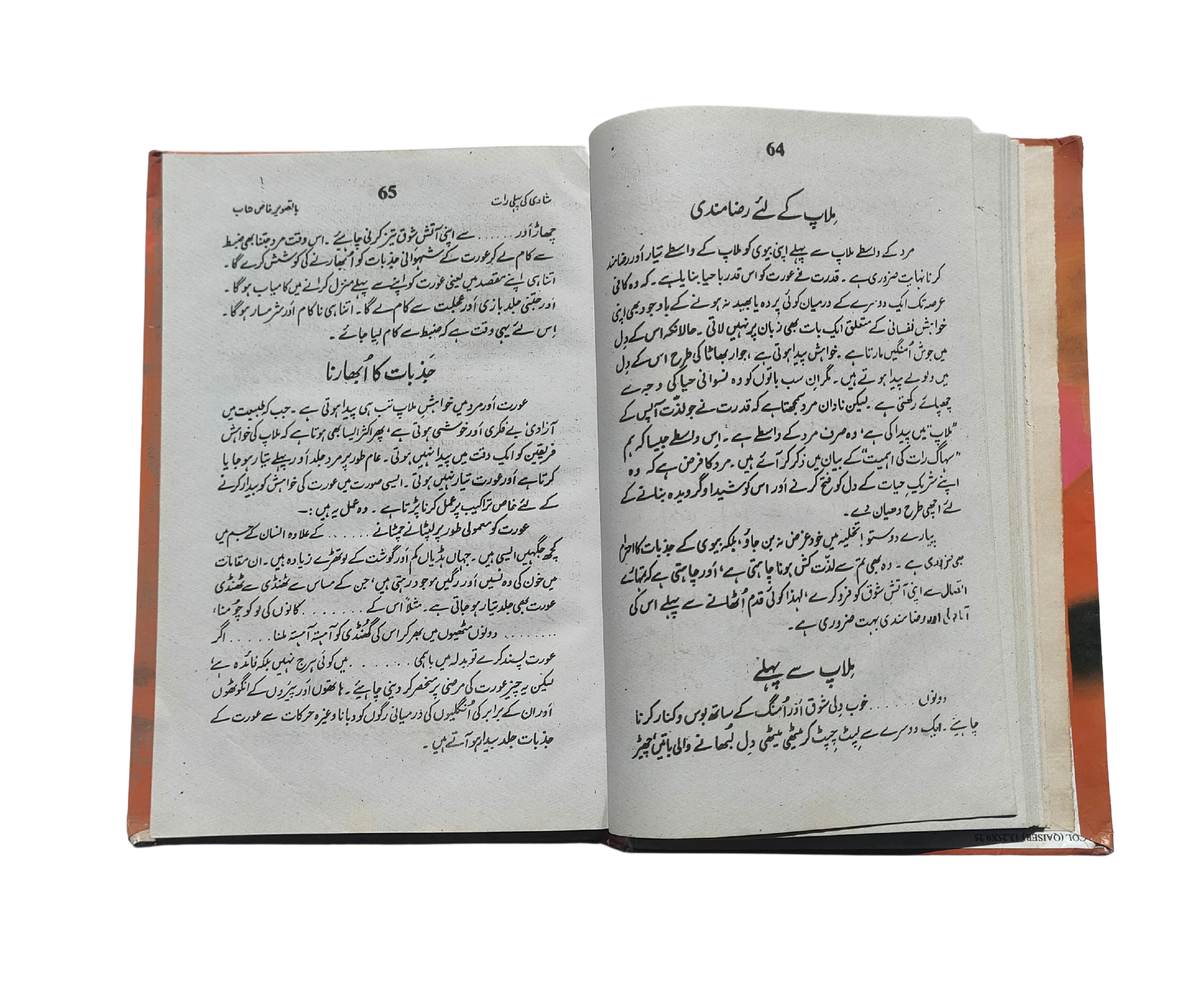 64
مِلاپ کے لئے رضامندی
مرد کے واسطے ملاپ سے پہلے اپنی بیوی کو ملاپ کے واسطے تیار اَور رضامند
کرنا نہایت ضروری ہے۔ قدرت نے عورت کو اس قدر باحیا بنایا ہے۔ کہ وہ کافی
عرصہ تک ایک دوسرے کے درمیان کوئی پردہ یا بھید نہ ہونے کے باوجود بھی اپنی
خواہش نفسانی کے متعلق ایک بات بھی زبان پر نہیں لاتی۔ حالانکہ اس کے دِل
میں جوش اُمنگیں مارتا ہے۔ خواہش پیدا ہوتی ہے، جوار بھاٹا کی طرح اس کے دِل
میں ولولے پیدا ہوتے ہیں۔ مگر اِن سب باتوں کو وہ نسوانی حیا کی وجہ سے
چھپائے رکھتی ہے۔ لیکن نادان مرد سمجھتا ہے کہ قدرت نے جو لذّت آپس کے
”ملاپ“ میں پیدا کی ہے، وہ صرف مرد کے واسطے ہے۔ اِس واسطے جیسا کہ ہم
”سہاگ رات کی اہمیت“ کے بیان میں ذکر کر آئے ہیں۔ مرد کا فرض ہے کہ وہ
اپنے شریکِ حیات کے دل کو فتح کرنے اور اس کو شیدا و گرویدہ بنانے کے
لئے اچھی طرح دھیان دے۔
پیارے دوستو! تخلیہ میں خود غرض نہ بن جاؤ، بلکہ بیوی کے جذبات کا احترام
بھی ضروری ہے۔ وہ بھی تم سے لذّت کش ہونا چاہتی ہے، اَور چاہتی ہے کہ تمہارے
اتصال سے اپنی آتشِ شوق کو فرو کرے، لہٰذا کوئی قدم اُٹھانے سے پہلے اس کی
آمادگی اور رضامندی بہت ضروری ہے۔
مِلاپ سے پہلے
دونوں ........ خوب دِلی شوق اَور اُمنگ کے ساتھ بوس و کنار کرنا
چاہیئے۔ ایک دوسرے سے لپٹ چپٹ کر میٹھی میٹھی دِل لُبھانے والی باتیں، چھیڑ
65
شادی کی پہلی رات
باتصویر خاص
چھاڑ اَور ........ سے اپنی آتشِ شوق تیز کرنی چاہیئے۔ اس وقت مرد جتنا بھی ضبط
سے کام لے کر عورت کے شہوانی جذبات کو اُبھارنے کی کوشش کرے گا۔
اتنا ہی اپنے مقصد میں یعنی عورت کو اپنے سے پہلے منزل کرانے میں کامیاب ہو گا۔
اَور جتنی جلد بازی اَور عجلت سے کام لے گا۔ اتنا ہی ناکام اَور شرمسار ہو گا۔
اِس لئے یہی وقت ہے کہ ضبط سے کام لیا جائے۔
جَذبات کا اُبھارنا
عورت اَور مرد میں خواہشِ ملاپ تب ہی پیدا ہوتی ہے۔ جب کہ طبیعت میں
آزادی، بے فکری اَور خوشی ہوتی ہے، پھر اکثر ایسا بھی ہوتا ہے کہ ملاپ کی خواہش
فریقین کو ایک وقت میں پیدا نہیں ہوتی۔ عام طور پر مرد جلد اَور پہلے تیار ہو جایا
کرتا ہے اَور عورت تیار نہیں ہوتی۔ ایسی صورت میں عورت کی خواہش کو بیدار کرنے
کے لئے خاص تراکیب پر عمل کرنا پڑتا ہے۔ وہ عمل یہ ہیں :-
عورت کو معمولی طور پر لپٹانے چمٹانے ...... کے علاوہ انسان کے جسم میں
کچھ جگہیں ایسی ہیں۔ جہاں ہڈیاں کم اَور گوشت کے لوتھڑے زیادہ ہیں۔ ان مقامات
میں خون کی وہ نسیں اَور رگیں موجود رہتی ہیں، جن کے مساس سے ٹھنڈی سے ٹھنڈی
عورت بھی جلد تیار ہو جاتی ہے۔ مثلاً اس کے ........ کانوں کی لو کو چُومنا،
........ دونوں مٹھیوں میں بھر کر اس کی گھُنڈی کو آہستہ آہستہ ملنا ..... اگر
عورت پسند کرے تو بدلہ میں باہمی ....... میں کوئی ہرج نہیں بلکہ فائدہ ہے،
لیکن یہ چیز عورت کی مرضی پر منحصر کر دینی چاہیئے۔ ہاتھوں اَور پیروں کے انگوٹھوں
اَور ان کے برابر کی اُنگلیوں کی درمیانی رگوں کو دبانا وغیرہ حرکات سے عورت کے
جذبات جلد بیدار ہو آتے ہیں۔